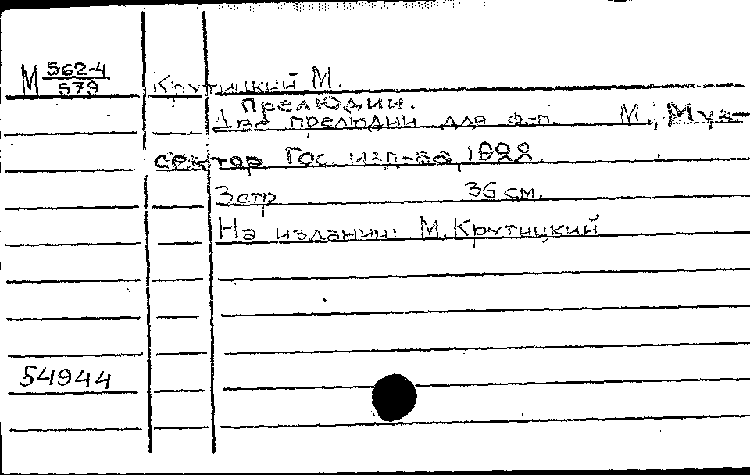 М 562-4
579
Крутицкий М.
Прелюдии.
Две прелюдии для ф-п. М., Муз-
сектор Гос. изд-ва, 1928.
3 стр. 36 см.
На издании: М. Крутицкий
54944